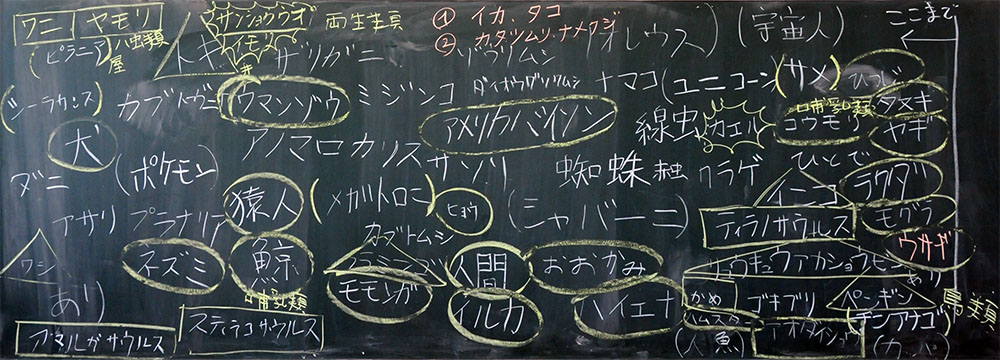 ワニ ヤモリ サンショウウオ 両生類 ① イカ、タコ (宇宙人) ここまで
(ピラニア) ハ虫類 トキ イモリ ザリガニ ② カタツムリ、ナメクジ
屋
(シーラカンス) カブトガニ マンゾウ ミジンコ ダイオウグソクムシ ナマコ (ユニコーン) (サメ) ひつじ
犬 アノマロカリス サソリ アメリカバイソン 線虫 カエル 哺乳類 コウモリ タヌキ
ヤギ
ダニ (ポケモン) 猿人 (メガトロニ ヒョウ 蜘蛛 クラゲ ひとで ラクダ
アサリ プラナリア (シャバーニ) インコ モグラ
ティラノサウルス
ワシ ネズミ 鯨 カブトムシ 人間 おおかみ ウサギ
リュウキュウアカショウビン
あり 哺乳類 モモンガ イルカ ハイエナ かめ ゴキブリ ペンギン 鳥類
アマルガサウルス スティラコサウルス ハムスター チンアナゴ
(人魚) (カッパ)